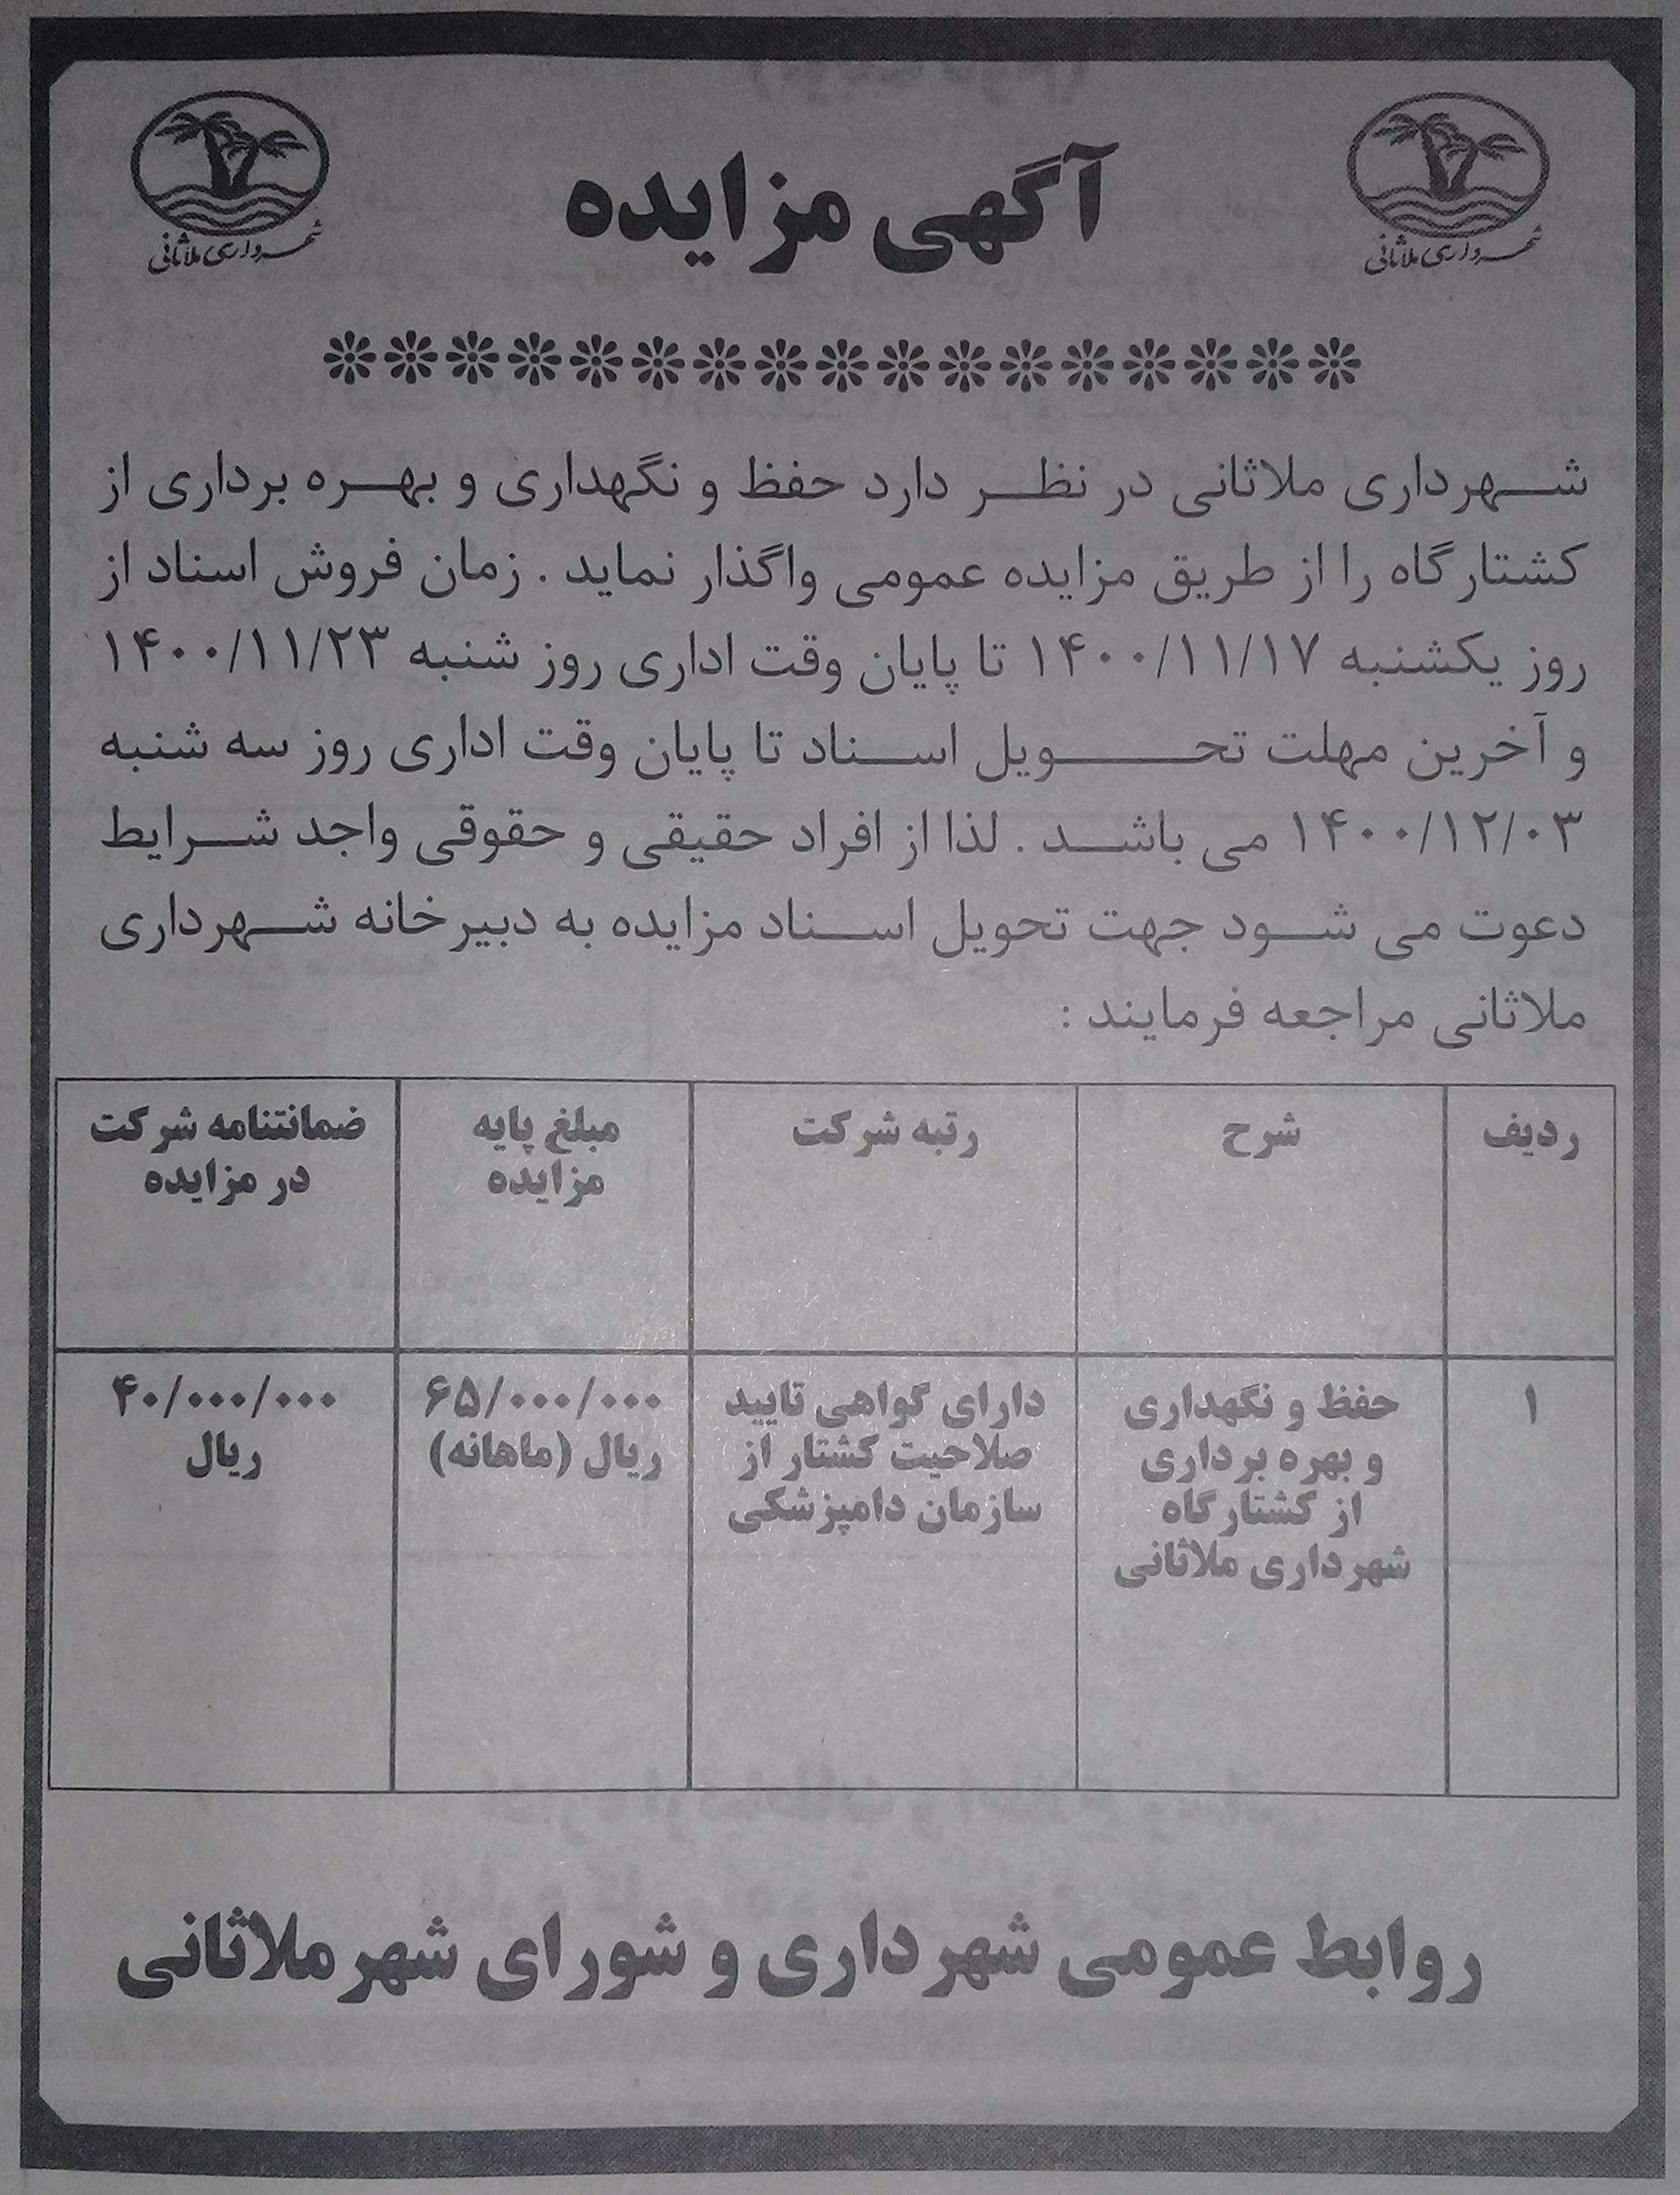 شهرداری ملاثانی
شهرداری ملاثانی
آگهی مزایده
شهرداری ملاثانی در نظر دارد حفظ و نگهداری و بهره برداری از
کشتارگاه را از طریق مزایده عمومی واگذار نماید . زمان فروش اسناد از
روز یکشنبه ۱۴۰۰/۱۱/۱۷ تا پایان وقت اداری روز شنبه ۱۴۰۰/۱۱/۲۳
و آخرین مهلت تحویل اسناد تا پایان وقت اداری روز سه شنبه
۱۴۰۰/۱۲/۰۳ می باشد . لذا از افراد حقیقی و حقوقی واجد شرایط
دعوت می شود جهت تحویل اسناد مزایده به دبیرخانه شهرداری
ملاثانی مراجعه فرمایند :
ردیف
شرح
رتبه شرکت
مبلغ پایه
مزایده
ضمانتنامه شرکت
در مزایده
۱
حفظ و نگهداری
و بهره برداری
از کشتارگاه
شهرداری ملاثانی
دارای گواهی تایید
صلاحیت کشتار از
سازمان دامپزشکی
۶۵/۰۰۰/۰۰۰
ریال (ماهانه)
۴۰/۰۰۰/۰۰۰
ریال
روابط عمومی شهرداری و شورای شهر ملاثانی